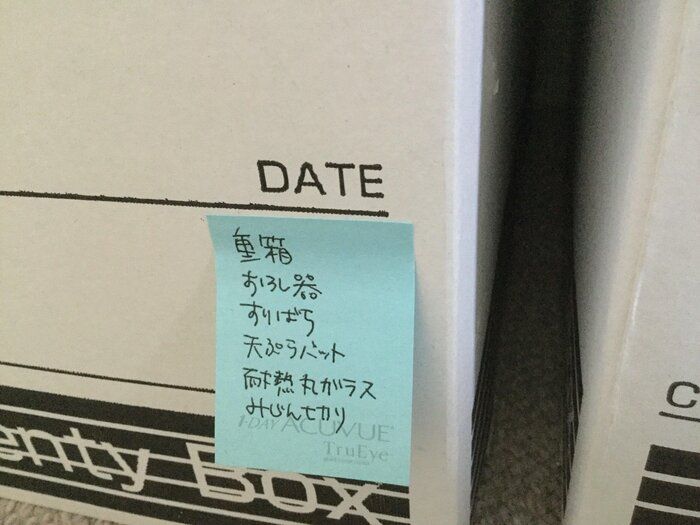 DATE
重箱
おろし器
すりばち
天ぷらバット
耐熱丸ガラス
みじん切り
1-DAY ACUVUE®
TruEye
enty Box
C